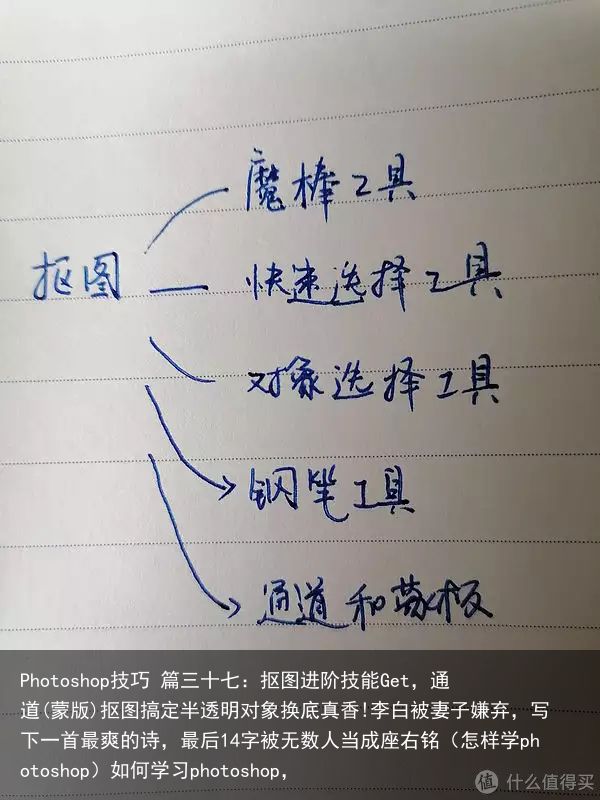 魔棒工具
抠图
快速选择工具
对象选择工具
钢笔工具
通道和蒙板
Photoshop技巧 篇三十七：抠图进阶技能Get，通
道(蒙版)抠图搞定半透明对象换底真香!李白被妻子嫌弃，写
下一首最爽的诗，最后14字被无数人当成座右铭（怎样学ph
otoshop）如何学习photoshop，
值 什么值得买